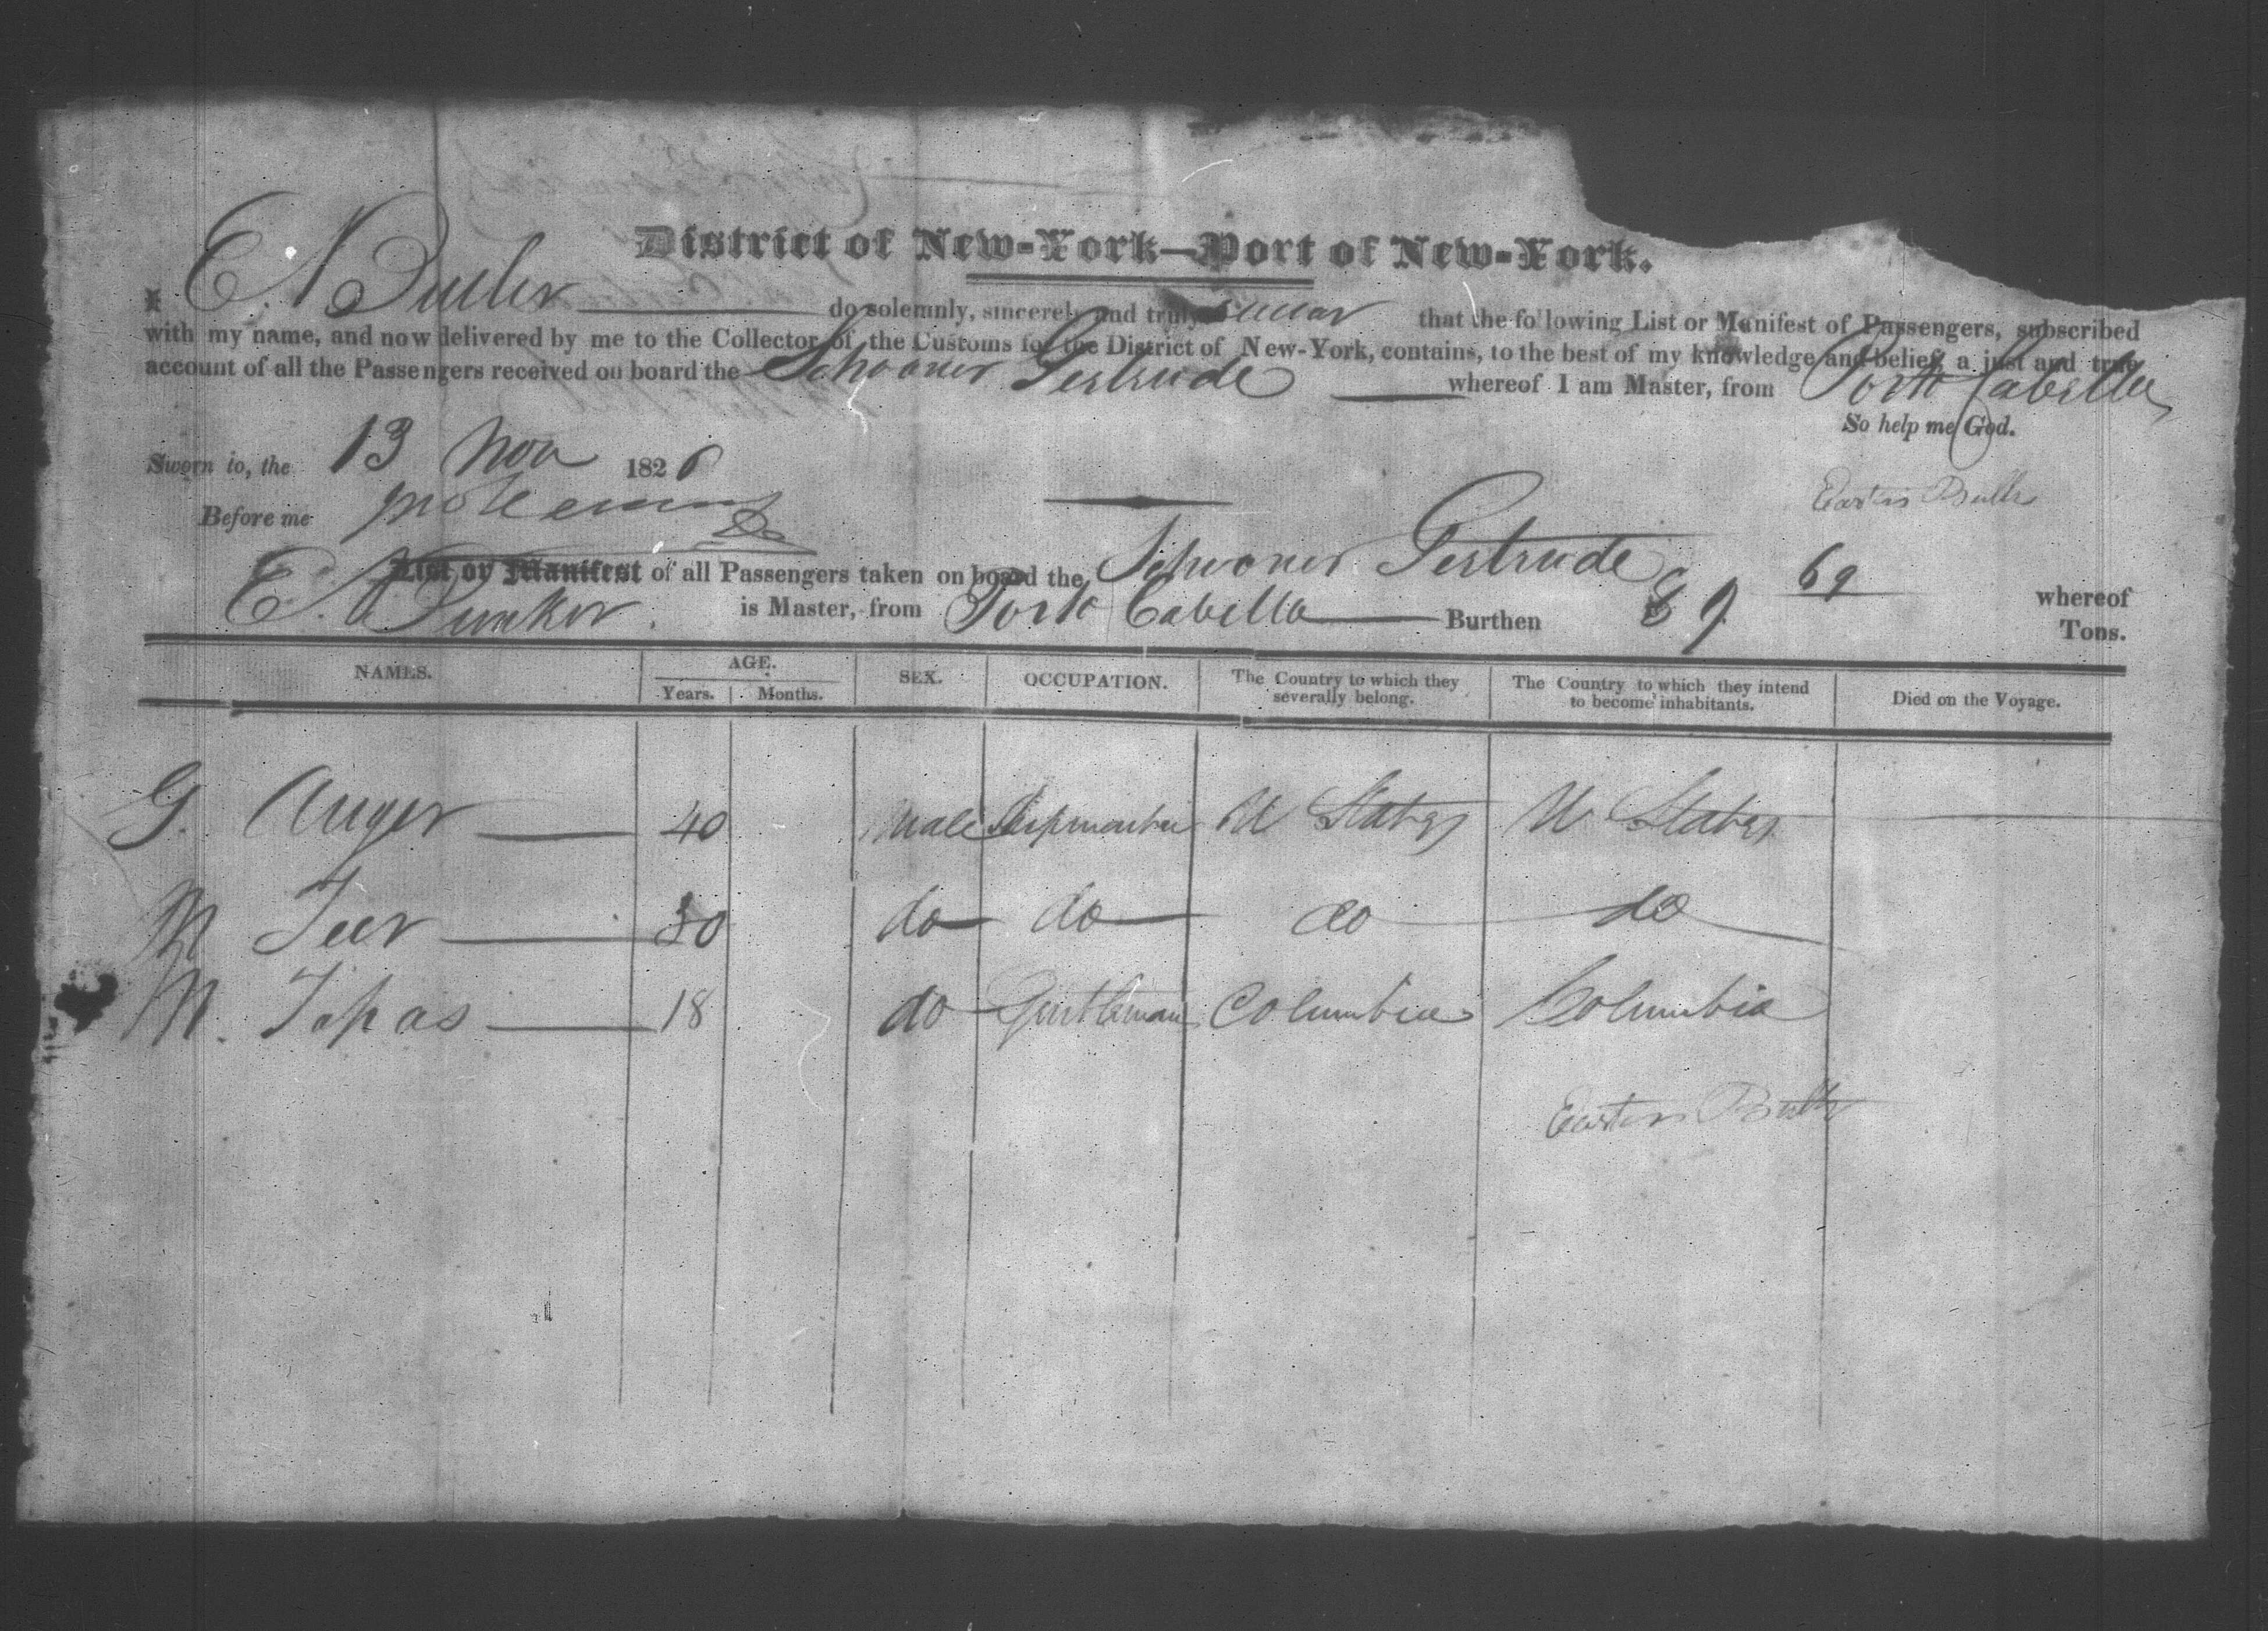 District of New-York—Port of New-York.
I E. A do solemnly, sincerely and truly swear that the following List or Manifest of Passengers, subscribed
with my name, and now delivered by me to the Collector of the Customs for the District of New-York, contains, to the best of my knowledge and belief, a just and true
account of all the Passengers received on board the Schooner Gertrude whereof I am Master, from Porto Cabello
So help me God.
Sworn to, the 13 Nov 1826
Before me
List or Manifest of all Passengers taken on board the Schooner Gertrude whereof
E. A. Bunker is Master, from Porto Cabello Burthen 89 69 Tons.
NAMES. AGE. SEX. OCCUPATION. The Country to which they severally belong. The Country to which they intend to become inhabitants. Died on the Voyage.
Years. Months.
G. Auger 40 Male U States U States
M Teer 30 do do do do
M. 18 do Gentleman Columbia Columbia